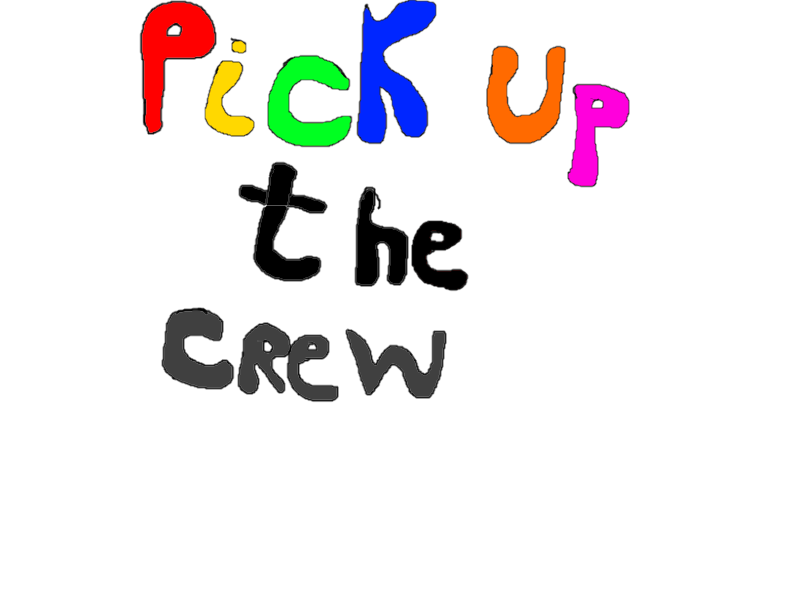 PicK UP
the
CReW